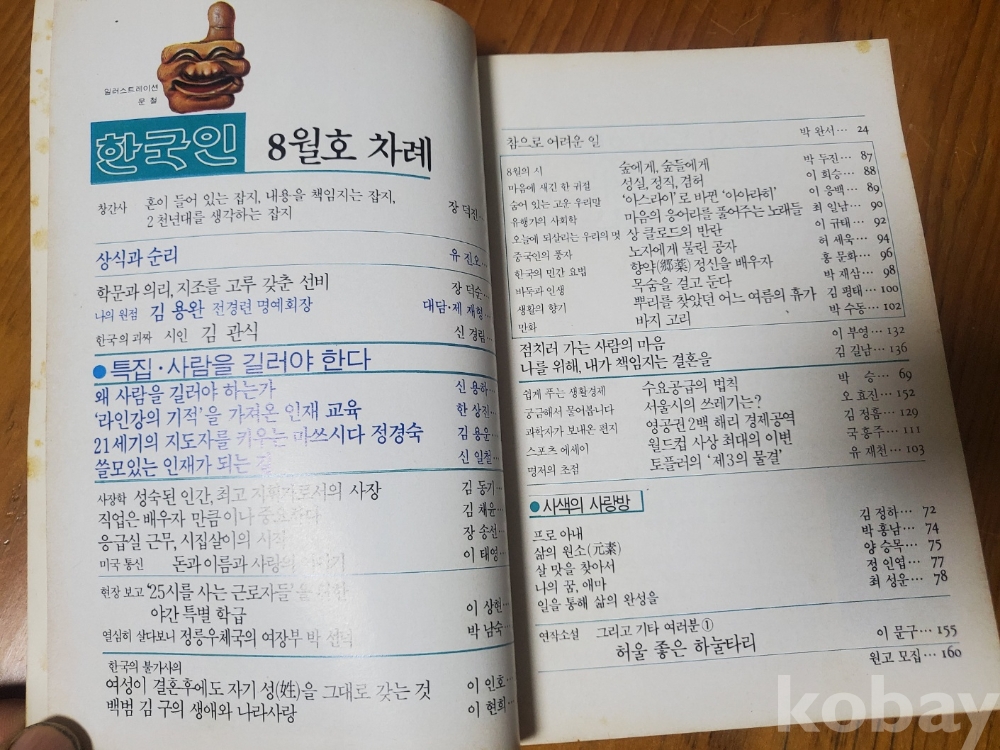 일러스트레이션
문 철
한국인 8월호 차례
창간사 혼이 들어 있는 잡지, 내용을 책임지는 잡지,
2천년대를 생각하는 잡지 장 덕진…
상식과 순리 유 진오…
학문과 의리, 지조를 고루 갖춘 선비 장 덕순…
나의 원점 김 용완 전경련 명예회장 대담·제 재형…
한국의 괴짜 시인 김 관식 신 경림…
●특집·사람을 길러야 한다
왜 사람을 길러야 하는가 신 용하…
'라인강의 기적'을 가져온 인재 교육 한 상진…
21세기의 지도자를 키우는 마쓰시다 정경숙 김 용운…
쓸모있는 인재가 되는 길 신 일철…
사장학 성숙된 인간, 최고 지휘관로서의 사장 김 동기…
직업은 배우자 만큼이나 중요하다 김 채윤…
응급실 근무, 시집살이의 시작 장 송선…
미국 통신 돈과 이름과 사랑의 이 태영…
현장 보고 '25시를 사는 근로자들'을 위한
야간 특별 학급 이 상현…
열심히 살다보니 정릉우체국의 여장부 박 선덕 박 남숙…
한국의 불가사의
여성이 결혼후에도 자기 성(姓)을 그대로 갖는 것 이 인호…
백범 김 구의 생애와 나라사랑 이 현희…
참으로 어려운 일 박 완서… 24
8월의 서 숲에게, 숲들에게 박 두진… 87
마음에 새긴 한 귀절 성실, 정직, 겸허 이 희승… 88
숨어 있는 고운 우리말 '아스라이'로 바뀐 '아아라히' 이 응백… 89
유행가의 사회학 마음의 응어리를 풀어주는 노래들 최 일남… 90
오늘에 되살리는 우리의 멋 상 클로드의 반란 이 규태… 92
중국인의 풍자 노자에게 물린 공자 허 세욱… 94
한국의 민간 요법 향약(鄕藥) 정신을 배우자 홍 문화… 96
바둑과 인생 목숨을 걸고 둔다 박 재삼… 98
생활의 향기 뿌리를 찾았던 어느 여름의 휴가 김 평태… 100
만화 바지 고리 박 수동… 102
점치러 가는 사람의 마음 이 부영… 132
나를 위해, 내가 책임지는 결혼을 김 길남… 136
쉽게 푸는 생활경제 수요공급의 법칙 박 승… 69
궁금해서 물어봅니다 서울시의 쓰레기는? 오 효진… 152
과학자가 보내온 편지 영공권 2백 해리 경제공역 김 정흠… 129
스포츠 에세이 월드컵 사상 최대의 이변 국 흥주… 111
명저의 초점 토플러의 '제3의 물결' 유 재천… 103
●사색의 사랑방
프로 아내 김 정하… 72
삶의 원소(元素) 박 홍남… 74
살 맛을 찾아서 양 승목… 75
나의 꿈, 애마 정 인엽… 77
일을 통해 삶의 완성을 최 성운… 78
연작소설 그리고 기타 여러분①
허울 좋은 하눌타리 이 문구… 155
원고 모집… 160
kobay